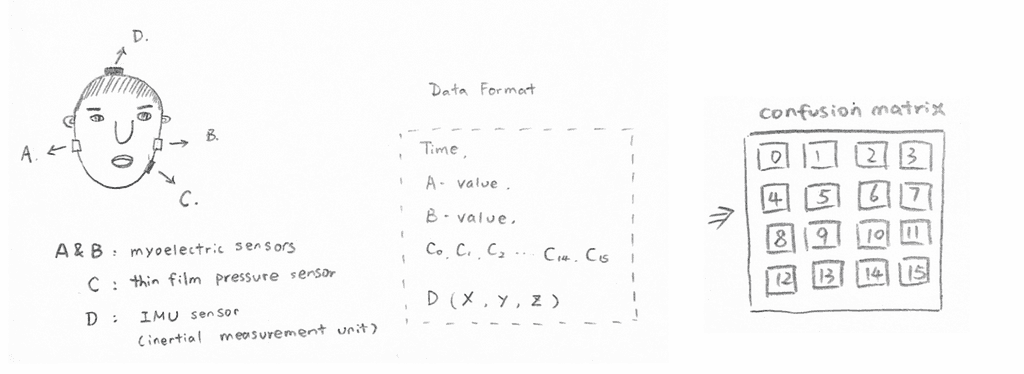 D.
A.
B.
C.
A & B : myoelectric sensors
C : thin film pressure sensor
D : IMU sensor
(inertial measurement unit)
Data Format
Time,
A- value.
B- value.
C0. C1. C2 ... C14. C15
D ( X , Y , Z )
confusion matrix
0 1 2 3
4 5 6 7
8 9 10 11
12 13 14 15